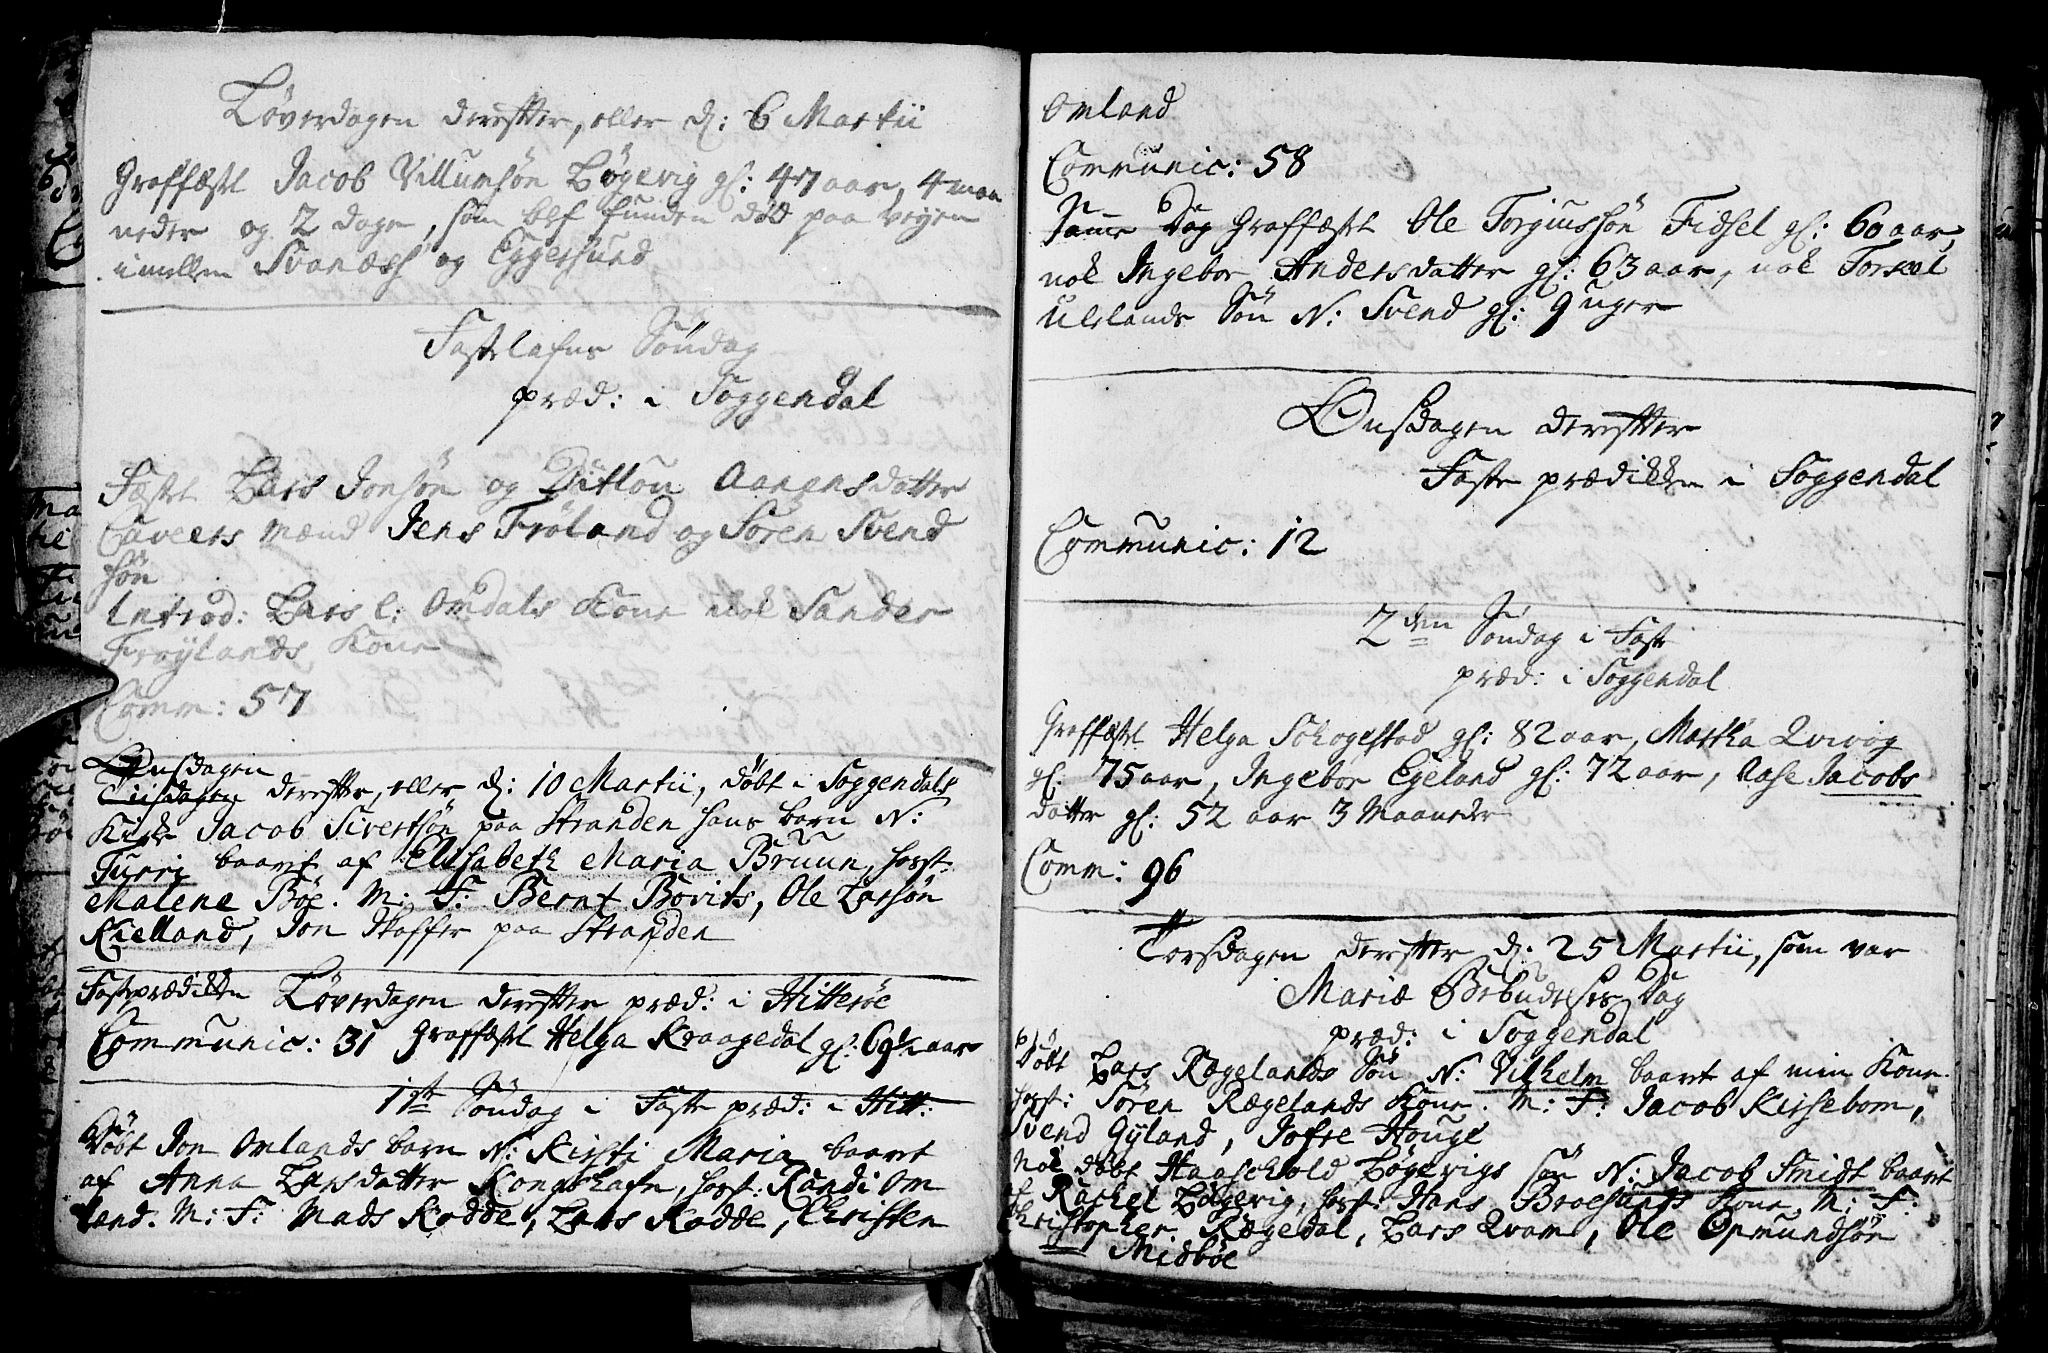 Løverdagen derefter, eller d: 6 Martii
Graffæstt Jacob Villumsøn Løgevig gl: 47 aar, 4 maa
neder og 2 dage, som blef funden død paa veyen
imellem Svanæss og Eggersund
Fastelafns Søndag
præd: i Soggendal
Fæstet Lars Jonsøn og Ditlou Aanensdatter
Caveers mænd Jens Frøland og Søren Svend
søn
Introd: L: Omdals Kone nok Sander
Frøylands Kone
Comm: 57
Onsdagen
Tiisdagen derefter, eller d: 10 Martii, døbt i Soggendals
Kirke Jacob Sivertsøn paa Stranden hans barn N:
Turri baaret af Elisabeth Maria Bruun, hoost:
Malene Bøe. M: F: Bernt Bovits, Ole Larsøn
Kielland, Jon Staffer paa Stranden
Fasteprædikken Løverdagen derefter præd: i Hitterøe
Communic: 31 Graffæstt Helga Kraagedal gl: aar
1ste Søndag i Faste præd: i Hitt:
Døbt Jon Omlands barn N: Kirsti Maria baaret
af Anna Larsdatter Kongshafn, host: Randi Om
land. M: F: Mads Rodde, Lars Rodde, Christen
Omland
Communic: 58
Samme Dag Graffæstt Ole Torgiussøn Fidsel gl: 60 aar,
nok Ingebor Andersdatter gl: 63 aar, nok Torkel
Ulelands Søn N: Svend gl: 9 uger
Onsdagen derefter
Faste prædikken i Soggendal
Communic: 12
2den Søndag i Faste
præd: i Soggendal
Graffæstt Helga Schogestad gl: 82 aar, Martha Qvivig
gl: 75 aar, Ingebor Egeland gl: 72 aar, Aase Jacobs
datter gl: 52 aar 3 Maaneder
Comm: 96
Torsdagen derefter d: 25 Martii, som var
Mariæ Bebudelses Dag
præd: i Soggendal
Døbt Lars Rægelands Søn N: Vilhelm baaret af min Kone.
host: Søren Rægelands Kone. M: F: Jacob Kirsebom,
Svend Gyland, Jofre Houge
Nok døbt Løgevigs søn N: Jacob Smidt baaret
af Rachel Løgevig, host: Hans Kone, M: F:
Christopher Rægedal, Lars Qvam, Ole Opmundsøn
Midbøe